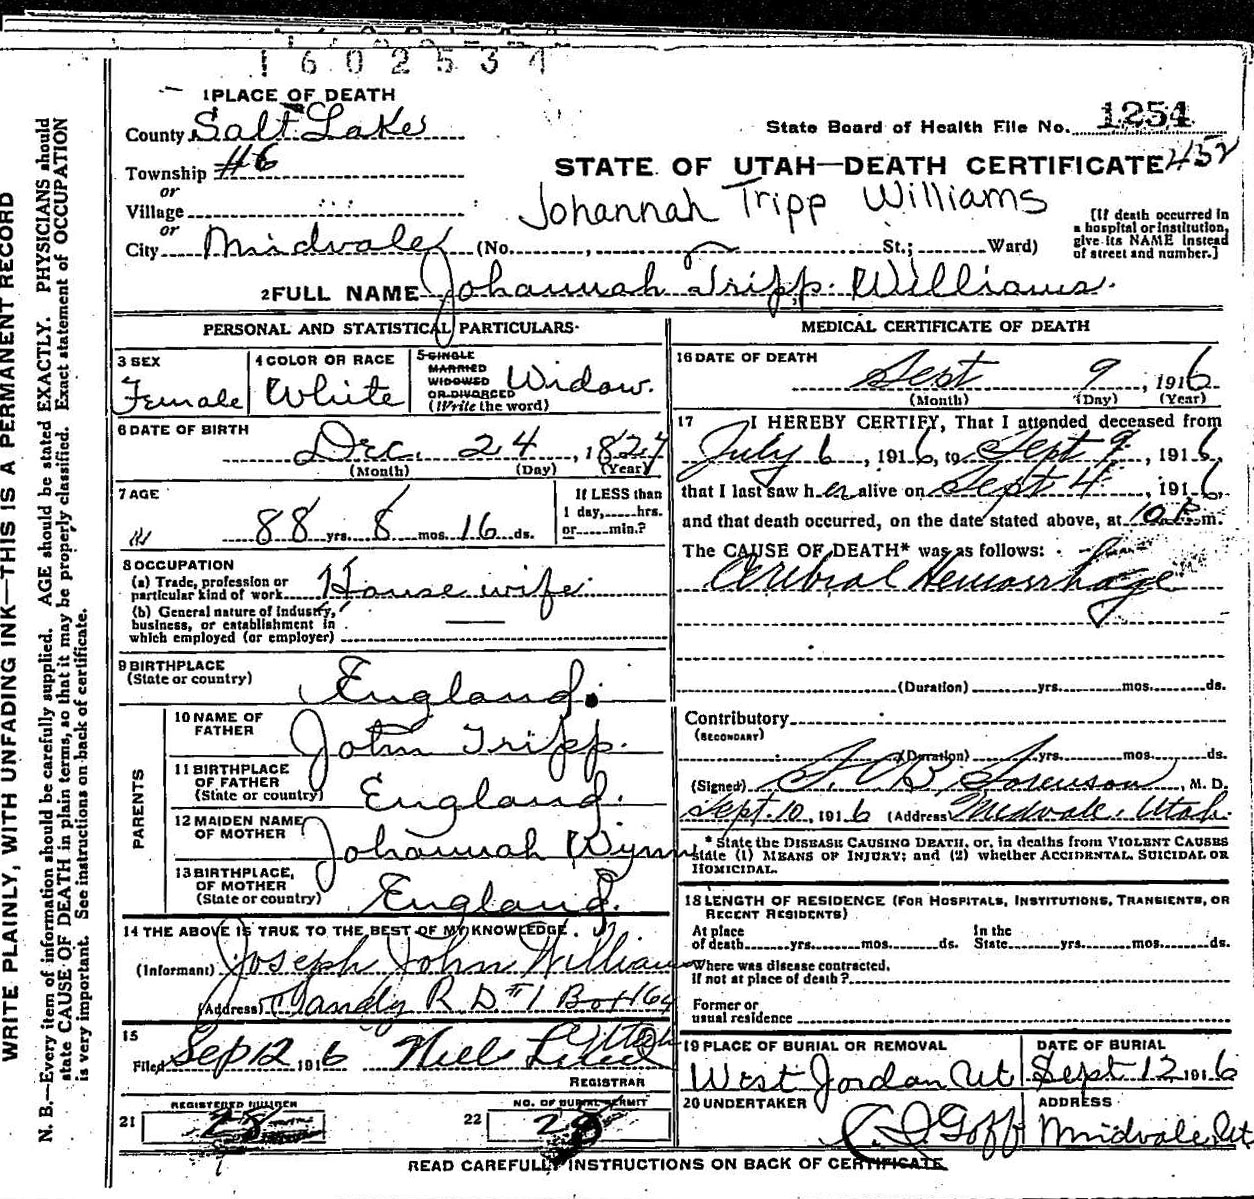 1602534
1 PLACE OF DEATH
County Salt Lake
State Board of Health File No. 1254
Township #6
STATE OF UTAH—DEATH CERTIFICATE 452
or
Village
Johannah Tripp Williams
or
City Midvale (No. St.; Ward)
[If death occurred in
a hospital or institution,
give its NAME instead
of street and number.]
2 FULL NAME Johannah Tripp Williams.
PERSONAL AND STATISTICAL PARTICULARS
3 SEX
Female
4 COLOR OR RACE
White
5 SINGLE
MARRIED
WIDOWED
OR DIVORCED
(Write the word)
Widow.
6 DATE OF BIRTH
Dec. 24, 1827
(Month) (Day) (Year)
7 AGE
88 yrs. 8 mos. 16 ds.
If LESS than
1 day, hrs.
or min.?
8 OCCUPATION
(a) Trade, profession or
particular kind of work House wife
(b) General nature of Industry,
business, or establishment in
which employed (or employer)
9 BIRTHPLACE
(State or country) England.
PARENTS
10 NAME OF
FATHER John Tripp.
11 BIRTHPLACE
OF FATHER
(State or country) England.
12 MAIDEN NAME
OF MOTHER Johannah Wynn
13 BIRTHPLACE,
OF MOTHER
(State or country) England.
14 THE ABOVE IS TRUE TO THE BEST OF MY KNOWLEDGE.
(Informant) Joseph John Williams
(Address) Sandy R. D. #1 Box 164
Utah
15
Filed Sep 12 1916 Niels Lind
REGISTRAR
REGISTERED NUMBER
21 28
NO. OF BURIAL PERMIT
22 28
MEDICAL CERTIFICATE OF DEATH
16 DATE OF DEATH
Sept 9, 1916
(Month) (Day) (Year)
17 I HEREBY CERTIFY, That I attended deceased from
July 6, 1916, to Sept 9, 1916,
that I last saw her alive on Sept 4, 1916,
and that death occurred, on the date stated above, at 10 P. m.
The CAUSE OF DEATH* was as follows:
Ceribral Hemorrhage
(Duration) yrs. mos. ds.
Contributory
(SECONDARY)
(Duration) yrs. mos. ds.
(Signed) Sorenson, M. D.
Sept. 10, 1916 (Address) Midvale, Utah.
* State the DISEASE CAUSING DEATH, or, in deaths from VIOLENT CAUSES
state (1) MEANS OF INJURY; and (2) whether ACCIDENTAL, SUICIDAL OR
HOMICIDAL.
18 LENGTH OF RESIDENCE (FOR HOSPITALS, INSTITUTIONS, TRANSIENTS, OR
RECENT RESIDENTS)
At place
of death yrs. mos. ds.
In the
State yrs. mos. ds.
Where was disease contracted.
If not at place of death?
Former or
usual residence
19 PLACE OF BURIAL OR REMOVAL
West Jordan Ut
DATE OF BURIAL
Sept 12 1916
20 UNDERTAKER
Goff
ADDRESS
Midvale, Ut.
READ CAREFULLY INSTRUCTIONS ON BACK OF CERTIFICATE
WRITE PLAINLY, WITH UNFADING INK—THIS IS A PERMANENT RECORD
N. B.—Every item of information should be carefully supplied. AGE should be stated EXACTLY. PHYSICIANS should
state CAUSE OF DEATH in plain terms, so that it may be properly classified. Exact statement of OCCUPATION
is very important. See instructions on back of certificate.